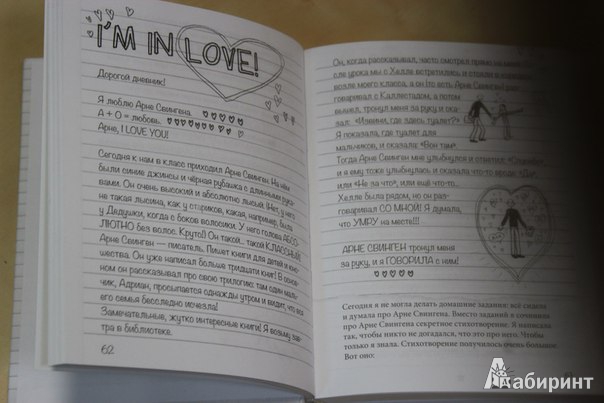 I'M IN LOVE!
Дорогой дневник!
Я люблю Арне Свингена
А + О = любовь.
Арне, I LOVE YOU!
Сегодня к нам в класс приходил Арне Свинген. На нём
были синие джинсы и чёрная рубашка с длинными рука-
вами. Он очень высокий и абсолютно лысый! (Нет, у него
не такая лысина, как у стариков, какая, например, была
у Дедушки, когда с боков волосики. У него голова АБСО-
ЛЮТНО без волос. Круто!) Он такой... такой КЛАССНЫЙ!
Арне Свинген — писатель. Пишет книги для детей и юно-
шества. Он уже написал больше тридцати книг! В основ-
ном он рассказывал про свою трилогию: там один маль-
чик, Адриан, просыпается однажды утром и видит, что вся
его семья бесследно исчезла!
Замечательные, жутко интересные книги! Я возьму зав-
тра в библиотеке.
62
Он, когда рассказывал, часто смотрел прямо на меня
сле урока мы с Хелле встретились и стояли в
возле моего класса, а он (то есть Арне Свинген) раз-
говаривал с Каллестадом, а потом
вышел, тронул меня за руку и ска-
зал: «Извини, где здесь туалет?»
Я показала, где туалет для
мальчиков, и сказала: «Вон там».
Тогда Арне Свинген мне улыбнулся и ответил: «Спасибо»,
и я ему тоже улыбнулась и сказала что-то вроде: «Да»,
или «Не за что», или ещё что-то.
Хелле была рядом, но он раз-
говаривал СО МНОЙ! Я думала,
что УМРУ на месте!!!
АРНЕ СВИНГЕН тронул меня
за руку, и я ГОВОРИЛА с ним!
Сегодня я не могла делать домашние задания: всё сидела
и думала про Арне Свингена. Вместо заданий я сочинила
про Арне Свингена секретное стихотворение. Я написала
так, чтобы никто не догадался, что это про него. Чтобы
только я знала. Стихотворение получилось очень большое.
Вот оно:
Лабиринт